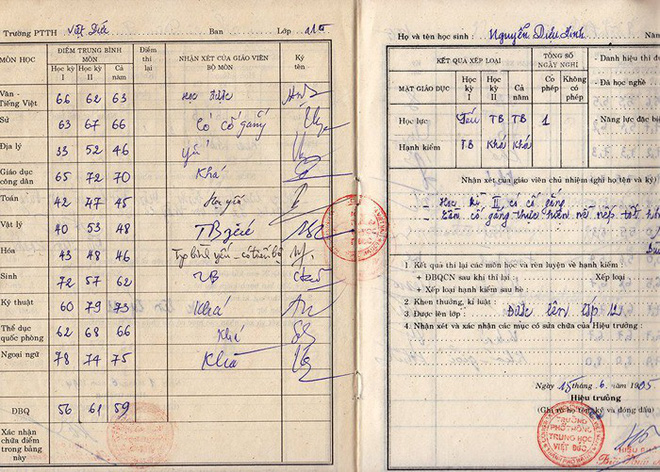 Trường PTTH Việt Đức Ban Lớp 11
MÔN HỌC ĐIỂM TRUNG BÌNH MÔN Điểm thi lại NHẬN XÉT CỦA GIÁO VIÊN BỘ MÔN Ký tên
Học kỳ I Học kỳ II Cả năm
Văn - Tiếng Việt 66 62 63 Học được
Sử 63 67 66 Có cố gắng
Địa lý 33 52 46 yếu
Giáo dục công dân 65 72 70 Khá
Toán 42 47 45 Học yếu
Vật lý 40 53 48 TB yếu
Hóa 43 48 46 có tiến bộ
Sinh 72 57 62 TB
Kỹ thuật 60 79 73 Khá
Thể dục quốc phòng 62 68 66 Khá
Ngoại ngữ 78 74 75 Khá
ĐBQ 56 61 59
Xác nhận chữa điểm trong bảng này
Họ và tên học sinh : Nguyễn Diệu Linh Nă
KẾT QUẢ XẾP LOẠI TỔNG SỐ NGÀY NGHỈ - Danh hiệu thi đu
MẶT GIÁO DỤC Học kỳ I Học kỳ II Cả năm Có phép Không có phép - Đã học nghề
Học lực Yếu TB TB 1 - Năng lực đặc biệ
Hạnh kiểm TB Khá Khá
Nhận xét của giáo viên chủ nhiệm (ghi họ tên và ký)
- Học kỳ II có cố gắng
- Cần cố gắng thực hiện nề nếp tốt
1. Kết quả thi lại các môn học và rèn luyện về hạnh kiểm
+ ĐBQCN sau khi thi lại : Xếp loại
+ Xếp loại hạnh kiểm sau hè :
2. Khen thưởng, kỉ luật :
3. Được lên lớp : Được lên lớp 12
4. Nhận xét và xác nhận các mục có sửa chữa của Hiệu trưởng :
Ngày 15 tháng 6 năm 1995
Hiệu trưởng
(Ghi rõ họ tên, ký và đóng dấu)
TRƯỜNG
PHỔ THÔNG
TRUNG HỌC
VIỆT ĐỨC